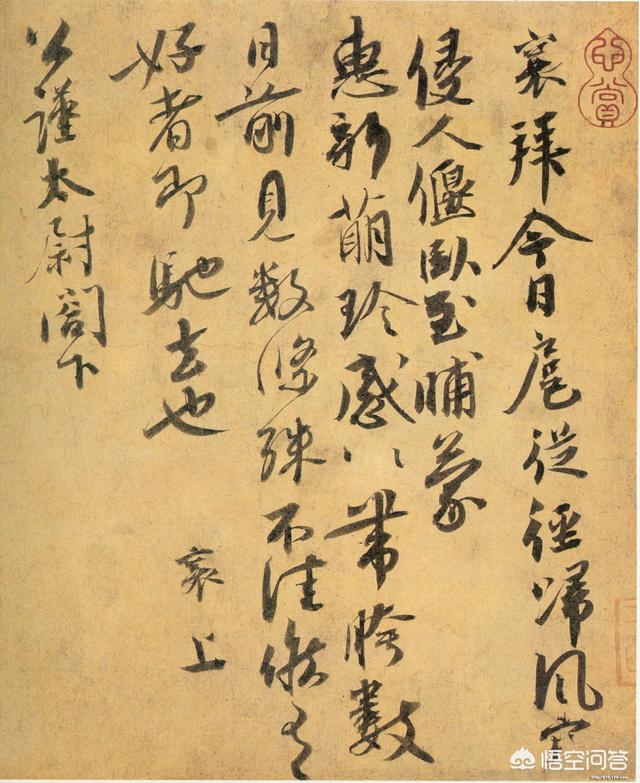 襄拜今日扈從徑歸風寒
侵人偃臥至晡蒙
惠新萠珎感〻帶胯數
日前見數條殊不佳候有
好者即馳去也
襄上
公謹太尉閣下
悟空问答